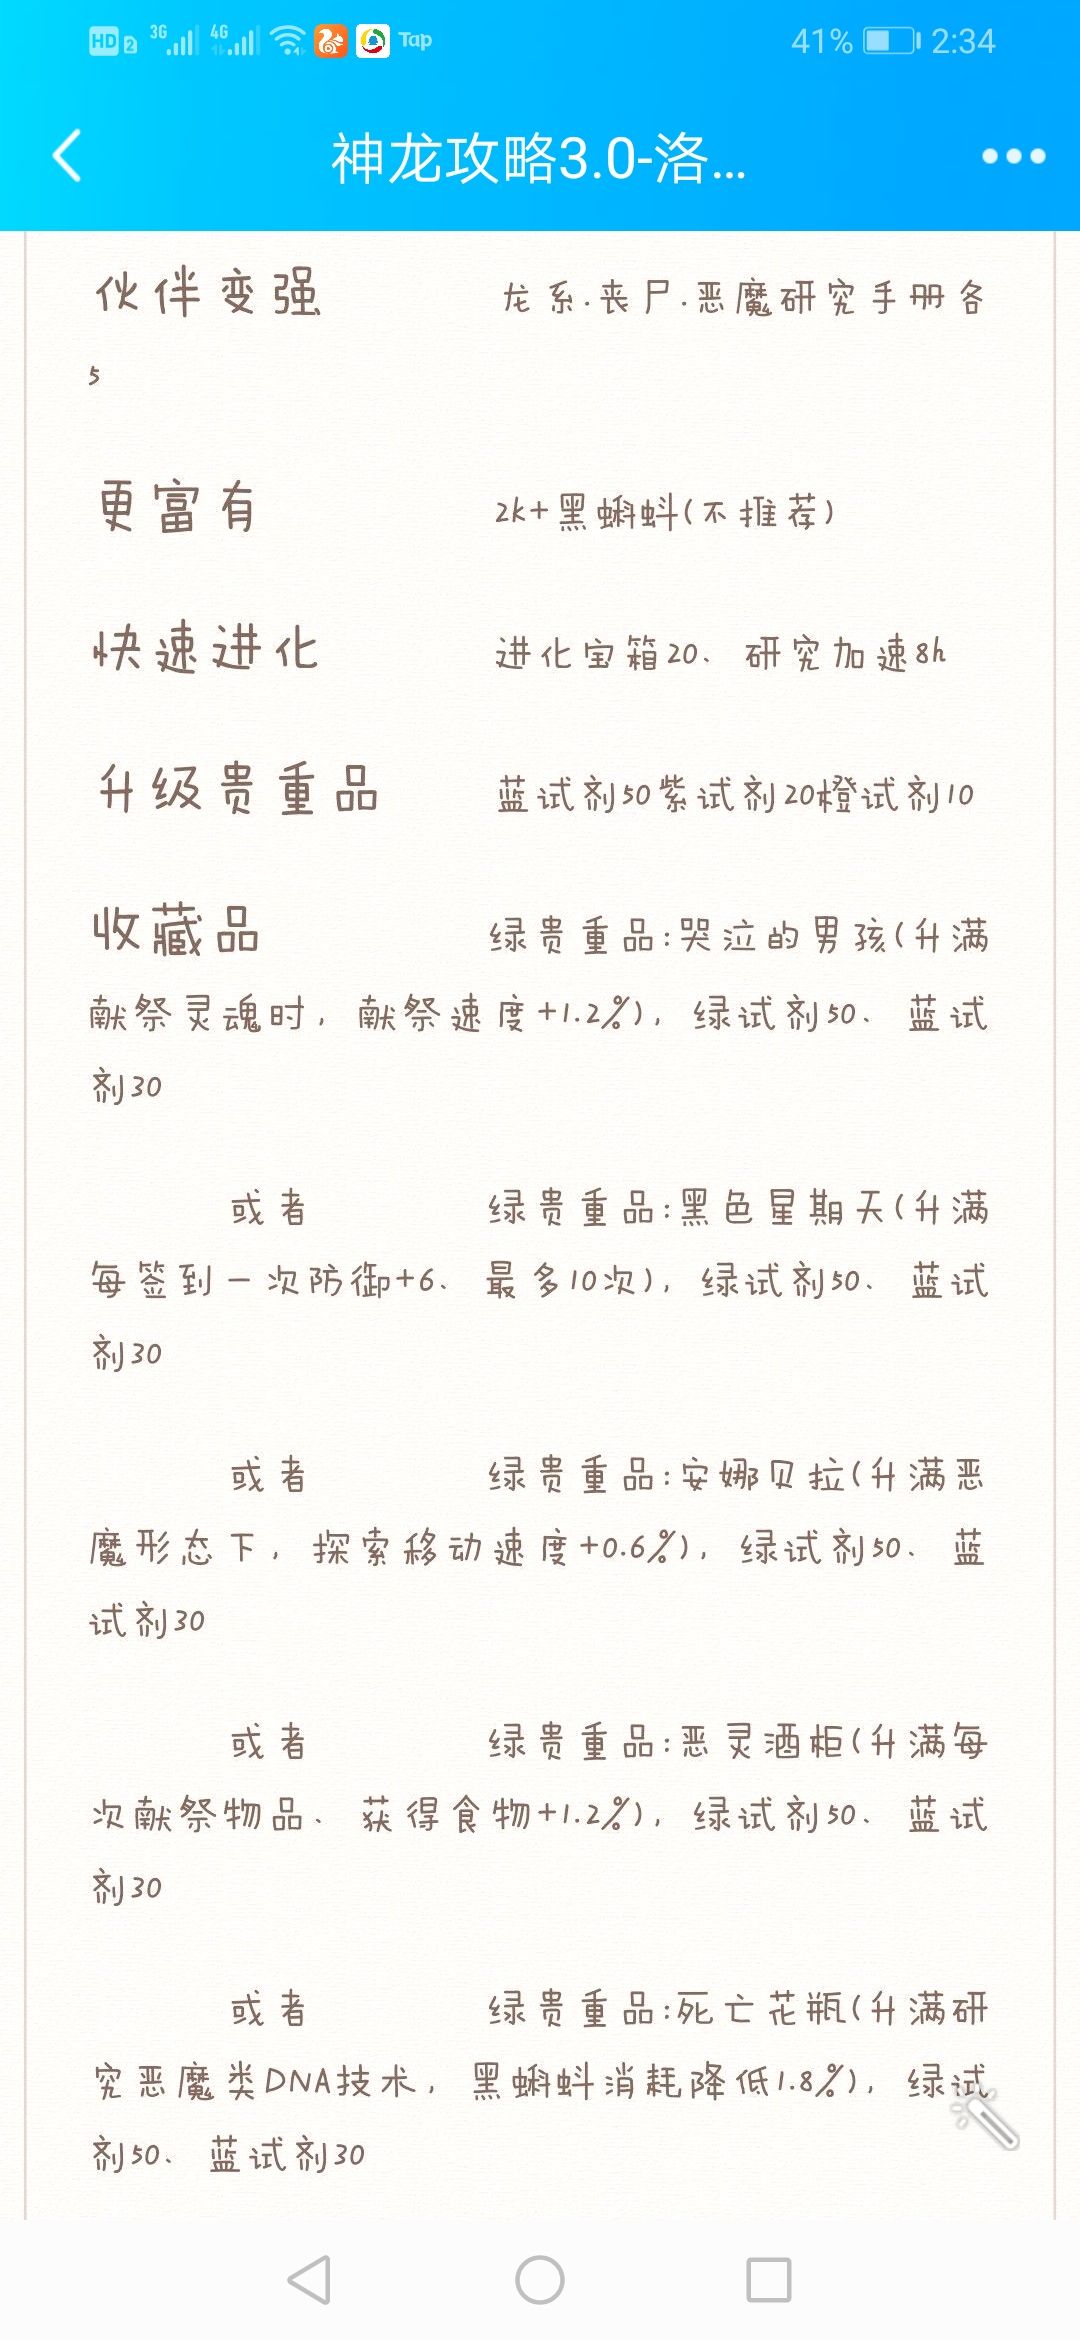 HD 2 3G 4G Tap 41% 2:34
神龙攻略3.0-洛...
伙伴变强 龙系.丧尸.恶魔研究手册各
5
更富有 2k+黑蝌蚪(不推荐)
快速进化 进化宝箱20、研究加速8h
升级贵重品 蓝试剂50紫试剂20橙试剂10
收藏品 绿贵重品:哭泣的男孩(升满
献祭灵魂时，献祭速度+1.2%)，绿试剂50、蓝试
剂30
或者 绿贵重品:黑色星期天(升满
每签到一次防御+6、最多10次)，绿试剂50、蓝试
剂30
或者 绿贵重品:安娜贝拉(升满恶
魔形态下，探索移动速度+0.6%)，绿试剂50、蓝
试剂30
或者 绿贵重品:恶灵酒柜(升满每
次献祭物品、获得食物+1.2%)，绿试剂50、蓝试
剂30
或者 绿贵重品:死亡花瓶(升满研
究恶魔类DNA技术，黑蝌蚪消耗降低1.8%)，绿试
剂50、蓝试剂30